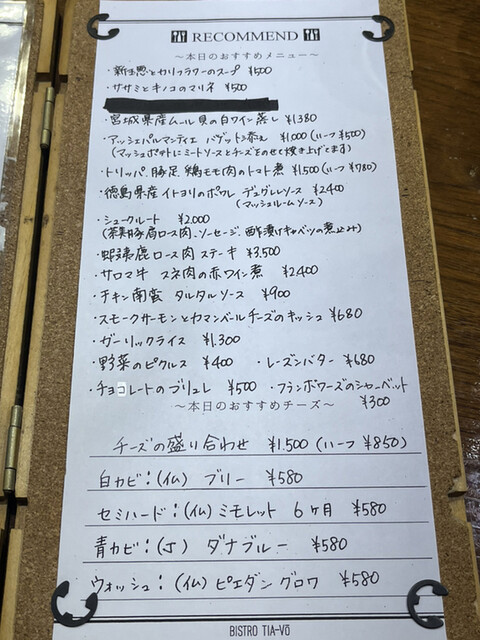 RECOMMEND
～本日のおすすめメニュー～
・新生思とカリフラワーのスープ ¥500
・ササミとキノコのマリネ ¥500
・宮城県産ムール貝の白ワイン蒸し ¥1380
・アッシェパルマンティエ バゲット添え ¥1,000(ハーフ ¥500)
(マッシュポテトにミートソースとチーズをのせて焼き上げてます)
・トリッパ、豚足、鶏モモ肉のトマト煮 ¥1,500(ハーフ ¥780)
・徳島県産イトヨリのポワレ デュグレレソース ¥2400
(マッシュルームソース)
・シュークルート ¥2.000
(豚肩ロース肉、ソーセージ、酢漬けキャベツの煮込み)
・蝦夷鹿ロース肉ステーキ ¥3,500
・サロマ牛 スネ肉の赤ワイン煮 ¥2400
・チキン南蛮 タルタルソース ¥900
・スモークサーモンとカマンベールチーズのキッシュ ¥680
・ガーリックライス ¥1.300
・野菜のピクルス ¥400 ・レーズンバター ¥680
・チョコレートのブリュレ ¥500 ・フランボワーズのシャーベット
¥300
～本日のおすすめチーズ～
チーズの盛り合わせ ¥1.500(ハーフ ¥850)
白カビ:(仏) ブリー ¥580
セミハード:(仏) ミモレット 6ヶ月 ¥580
青カビ:(丁) ダナブルー ¥580
ウォッシュ:(仏) ピエダングロワ ¥580
BISTRO TIA-Vō